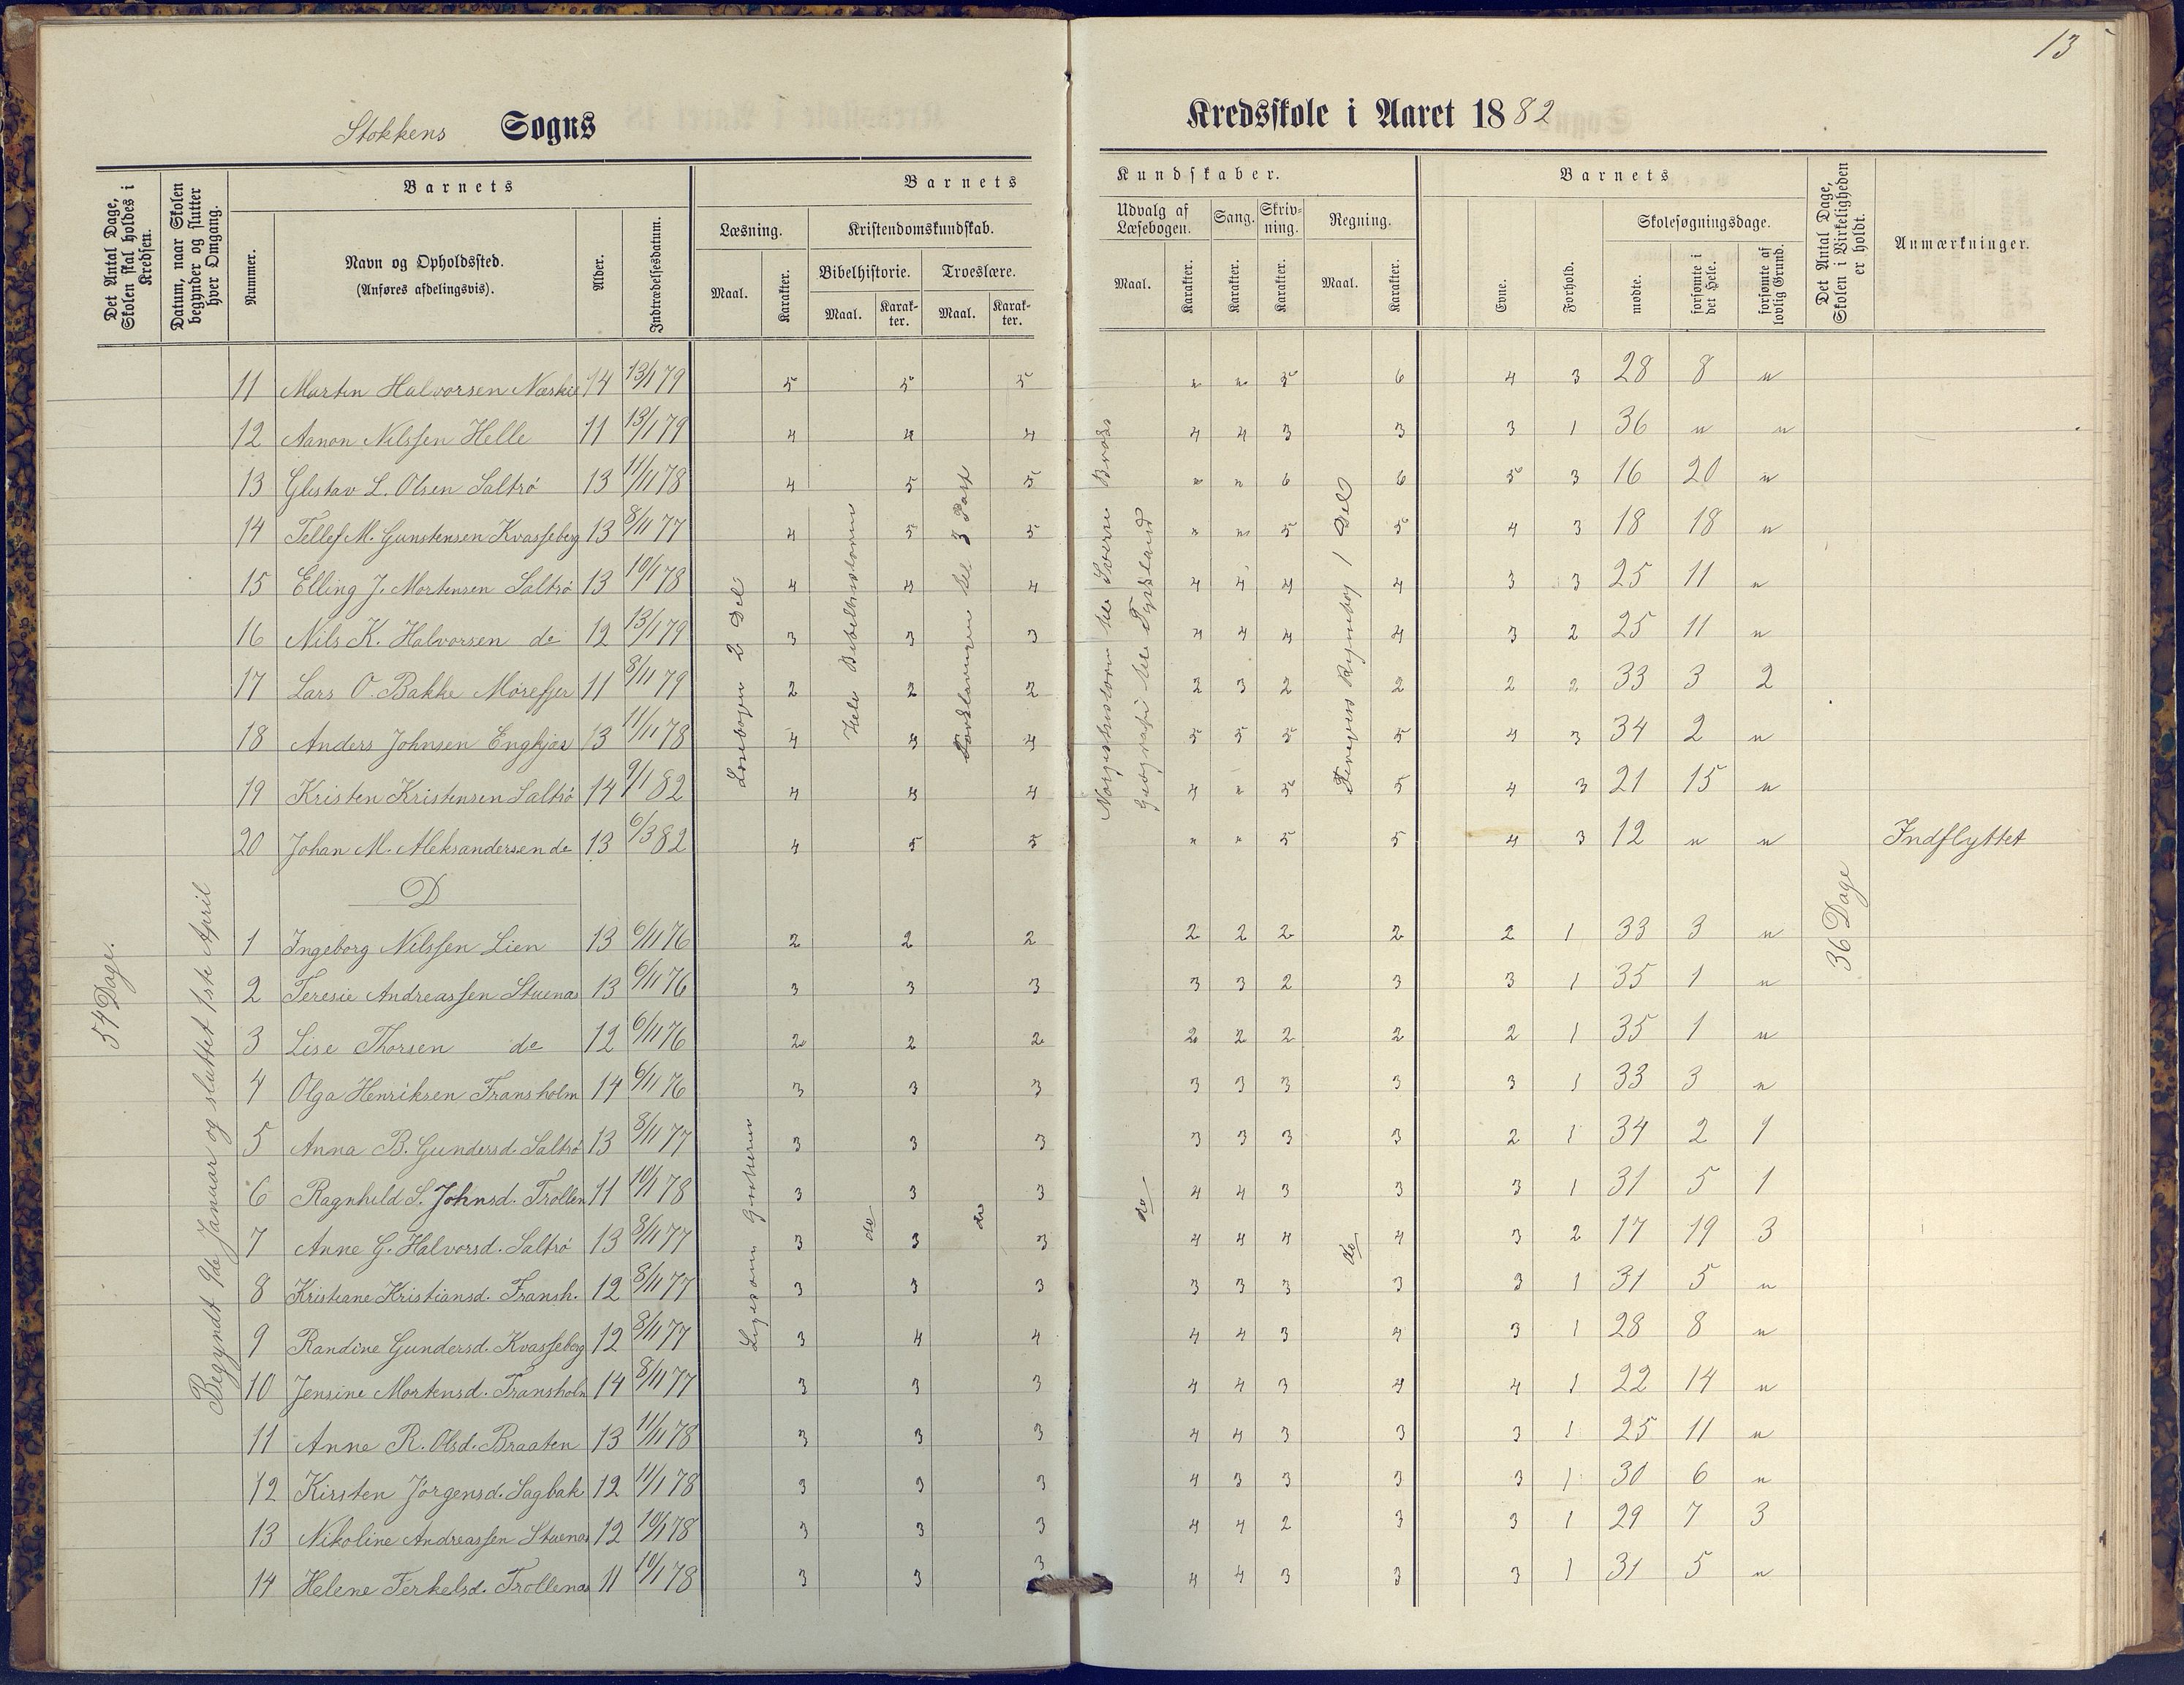 13
Stokkens Sogns Kredsskole i Aaret 1882
Det Antal Dage, Skolen skal holdes i Kredsen.
Datum, naar Skolen begynder og slutter hver Omgang.
Barnets
Nummer.
Navn og Opholdssted.
(Anføres afdelingsvis).
Alder.
Indtrædelsesdatum.
Barnets Kundskaber.
Læsning.
Maal.
Karakter.
Kristendomskundskab.
Bibelhistorie.
Maal.
Karakter.
Troeslære.
Maal.
Karakter.
Udvalg af Læsebogen.
Maal.
Karakter.
Sang.
Karakter.
Skrivning.
Karakter.
Regning.
Maal.
Karakter.
Barnets
Evne.
Forhold.
Skolesøgningsdage.
mødte.
forsømte i det Hele.
forsømte af lovlig Grund.
Det Antal Dage, Skolen i Virkeligheden er holdt.
Anmærkninger.
11 Martin Halvorsen 14 13/1 79 5 5 5 " " 5 6 4 3 28 8 "
12 Aanon Nilssen Helle 11 13/1 79 4 4 4 4 4 3 3 3 1 36 " "
13 Gustav L. Olsen Saltrø 13 11/11 78 4 5 5 " " 6 6 5 3 16 20 "
14 Tellef M. Gunstensen Kvasseberg 13 8/11 77 4 5 5 " " 5 5 4 3 18 18 "
15 Elling J. Mortensen Saltrø 13 10/1 78 4 4 4 4 4 4 4 3 3 25 11 "
16 Nils K. Halvorsen do 12 13/1 79 3 3 3 4 4 4 4 3 2 25 11 "
17 Lars O. Bakke Mørefjer 11 8/11 79 2 2 2 2 3 2 2 2 2 33 3 2
18 Anders Johnsen Engkjær 13 11/11 78 4 4 4 5 5 5 5 4 3 34 2 "
19 Kristen Kristensen Saltrø 14 9/1 82 4 4 4 4 " 5 5 4 3 21 15 "
20 Johan M. Aleksandersen do 13 6/3 82 4 5 5 " " 5 5 4 3 12 " " Indflyttet
Læsebogen 2 Del
Hele Bibelhistorien
Forklaringen til 3 Part
Norgeshistorien til Sverre
Geografi til Tydskland
Regnebog 1 Del
D
54 Dage.
Begyndt 9de Januar og sluttet 1ste April
36 Dage
1 Ingeborg Nilssen Lien 13 6/11 76 2 2 2 2 2 2 2 2 1 33 3 "
2 Teresie Andreassen Stuenæs 13 6/11 76 3 3 3 3 3 2 3 3 1 35 1 "
3 Lise Thorsen do 12 6/11 76 2 2 2 2 2 2 2 2 1 35 1 "
4 Olga Henriksen Fransholm 14 6/11 76 3 3 3 3 3 3 3 3 1 33 3 "
5 Anna B. Gundersd. Saltrø 13 8/11 77 3 3 3 3 3 3 3 2 1 34 2 1
6 Ragnhild S. Johnsd. Trollen 11 10/1 78 3 3 3 4 4 3 3 3 1 31 5 1
7 Anne G. Halvorsd. Saltrø 13 8/11 77 3 3 3 4 4 4 4 3 2 17 19 3
8 Kristiane Kristiansd. Fransh. 12 8/11 77 3 3 3 3 3 3 3 3 1 31 5 "
9 Randine Gundersd. Kvasseberg 12 8/11 77 3 4 4 4 4 3 4 3 1 28 8 "
10 Jensine Mortensd. Fransholm 14 8/11 77 3 3 3 4 4 3 4 4 1 22 14 "
11 Anne R. Olsd. Braaten 13 11/1 78 3 3 3 4 4 3 3 3 1 25 11 "
12 Kirsten Jørgensd. Sagbak 12 11/1 78 3 3 3 4 3 3 3 3 1 30 6 "
13 Nikoline Andreassen Stuenæs 12 10/1 78 3 3 3 4 4 2 3 3 1 29 7 3
14 Helene Terkelsd. Trollenæs 11 10/1 78 3 3 3 4 4 3 3 3 1 31 5 "
Ligesom Gutterne
do
do
do
do